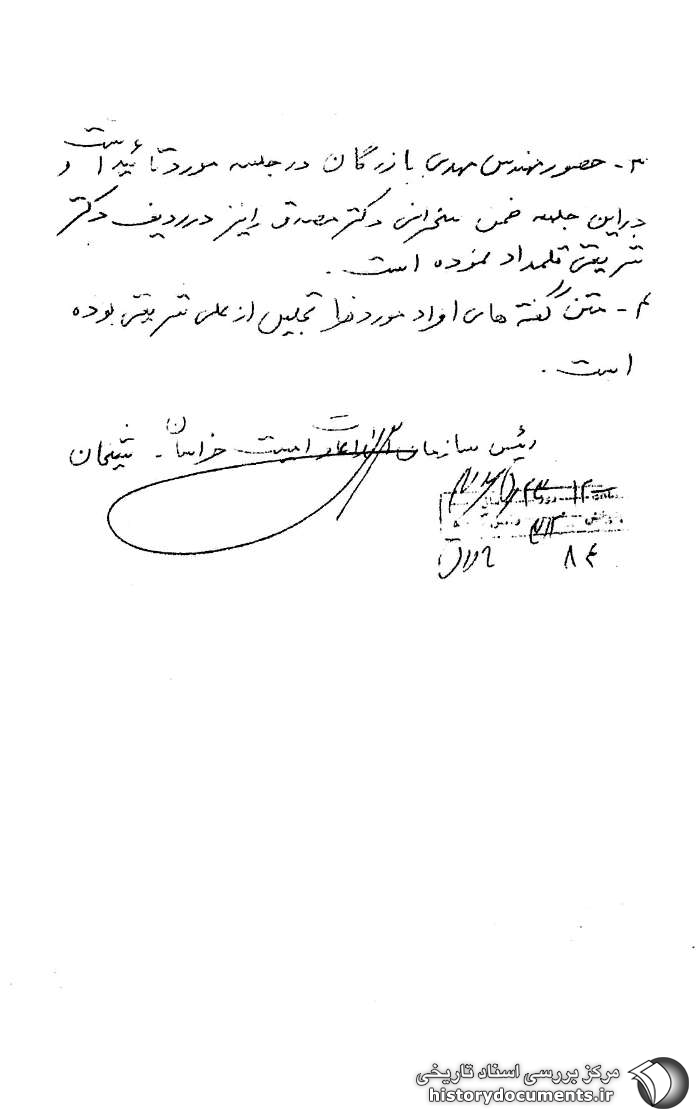 ۳- حضور مهندس مهدی بازرگان در جلسه مورد تائید است و
در این جلسه ضمن سخنرانی دکتر مصدق را نیز در ردیف دکتر
شریعتی قلمداد نموده است.
۴- متن گفته های افراد مورد نظر تجلیل از علی شریعتی بوده
است.
رئیس سازمان اطلاعات و امنیت خراسان - شیخان
مرکز بررسی اسناد تاریخی
historydocuments.ir